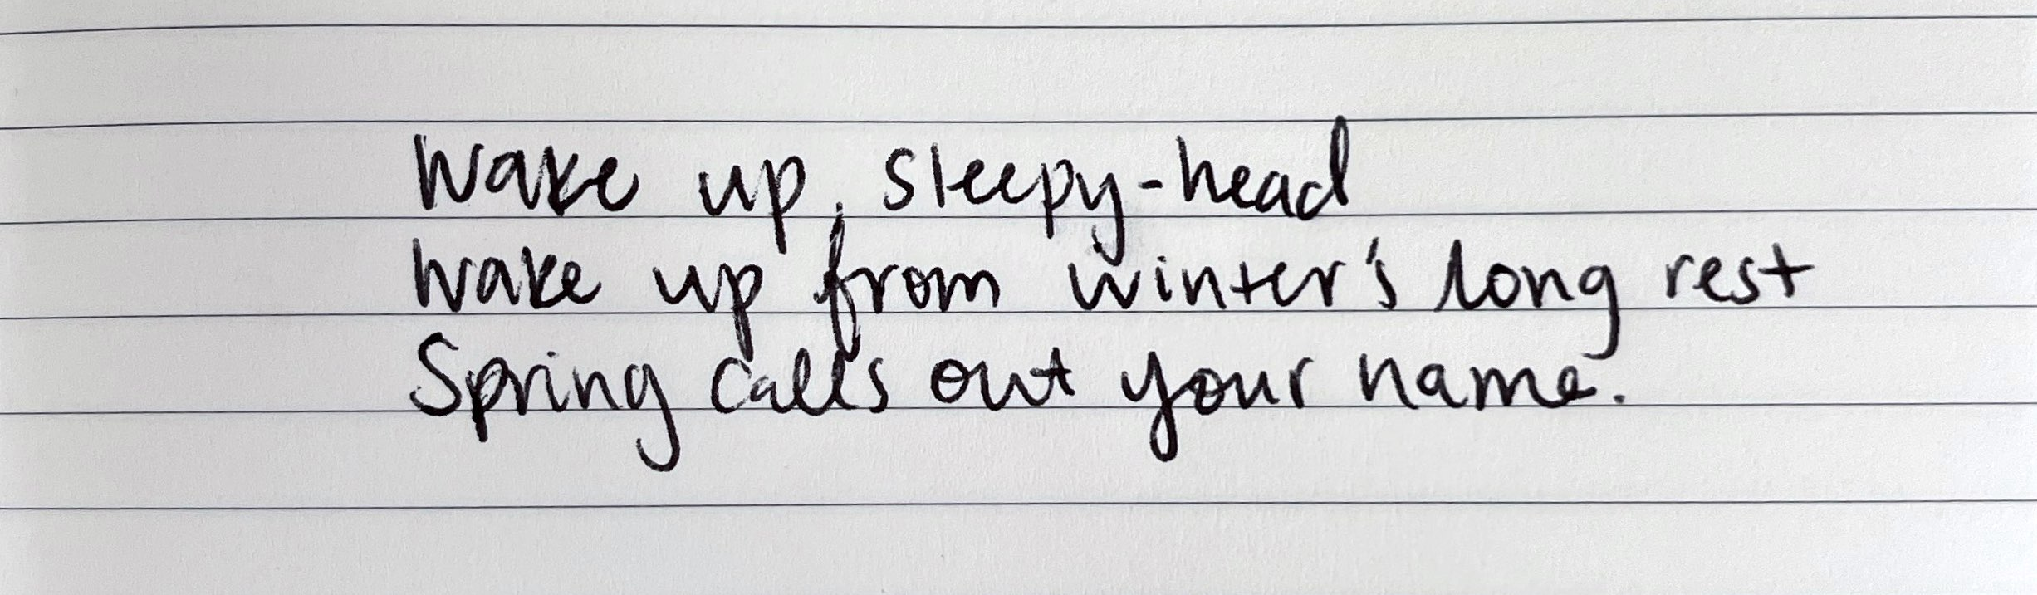 Wake up, sleepy-head
Wake up from winter's long rest
Spring calls out your name.